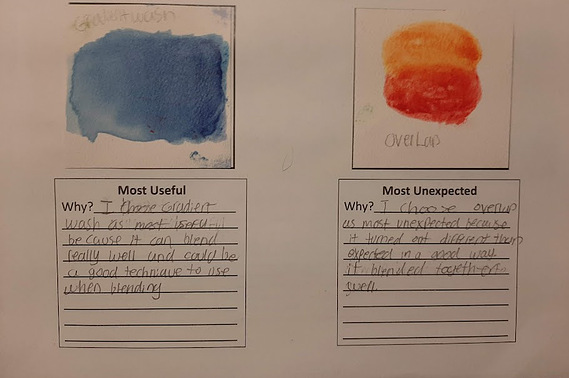 Gradient wash
overlap
Most Useful
Why? I chose Gradient
wash as most useful
because it can blend
really well and could be
a good technique to use
when blending
Most Unexpected
Why? I choose overlap
as most unexpected because
it turned out different then
expected in a good way
it blended together
well.